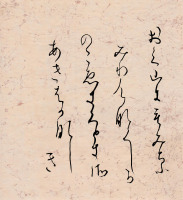 おく山にもみちふ
みわけなくしか
のこゑきくときそ
あきはかなしき